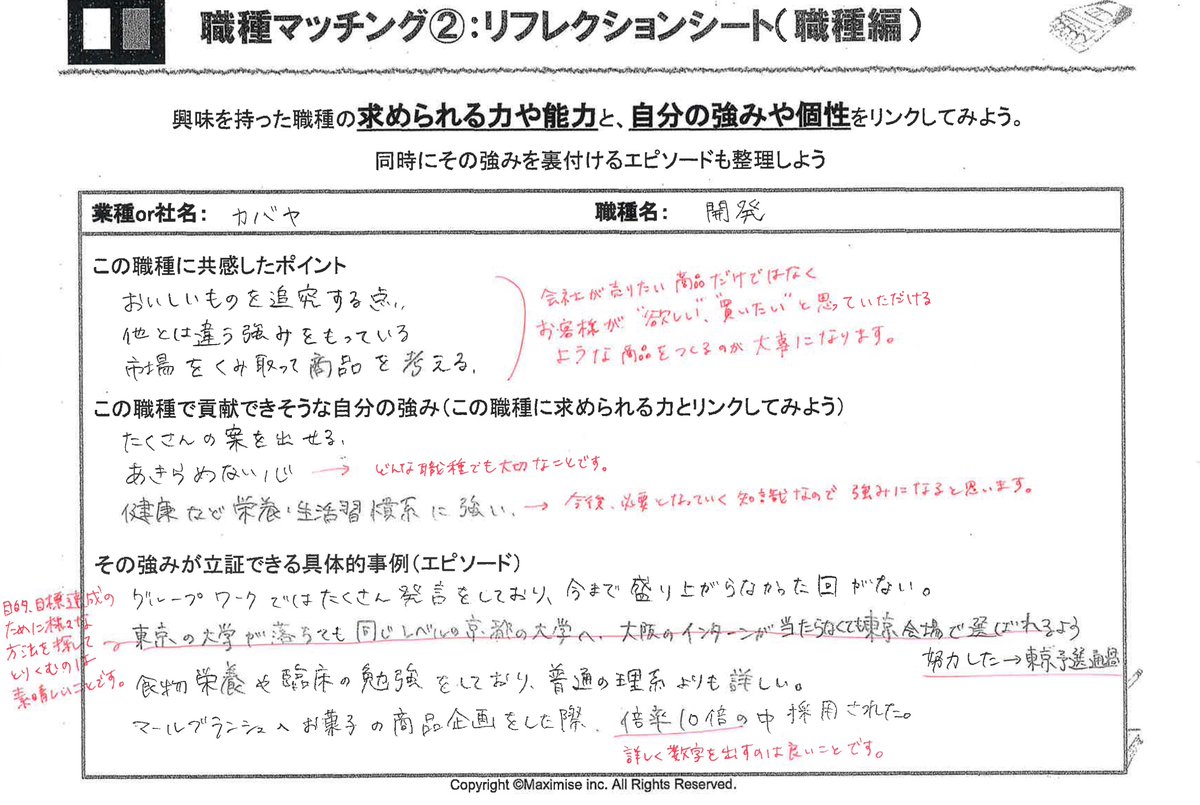 職種マッチング②:リフレクションシート(職種編)
興味を持った職種の求められる力や能力と、自分の強みや個性をリンクしてみよう。
同時にその強みを裏付けるエピソードも整理しよう
業種or社名: カバヤ 職種名: 開発
この職種に共感したポイント
おいしいものを追究する点、
他とは違う強みをもっている
市場をくみ取って商品を考える、
会社が売りたい商品だけではなく
お客様が"欲しい"、"買いたい"と思っていただける
ような商品をつくるのが大事になります。
この職種で貢献できそうな自分の強み(この職種に求められる力とリンクしてみよう)
たくさんの案を出せる、
あきらめない心 → どんな職種でも大切なことです。
健康など栄養・生活習慣系に強い、 → 今後、必要となっていく知識なので強みになると思います。
その強みが立証できる具体的事例(エピソード)
グループワークではたくさん発言をしており、今まで盛り上がらなかった回がない。
東京の大学が落ちても同じレベルの京都の大学へ、大阪のインターンが当たらなくても東京会場で選ばれるよう
努力した→東京予選通過
食物栄養や臨床の勉強をしており、普通の理系よりも詳しい。
マールブランシュへお菓子の商品企画をした際、倍率10倍の中採用された。
詳しく数字を出すのは良いことです。
目的、目標達成の
ために様々な
方法を探して
とりくむのは
素晴しいことです。
Copyright ©Maximise inc. All Rights Reserved.